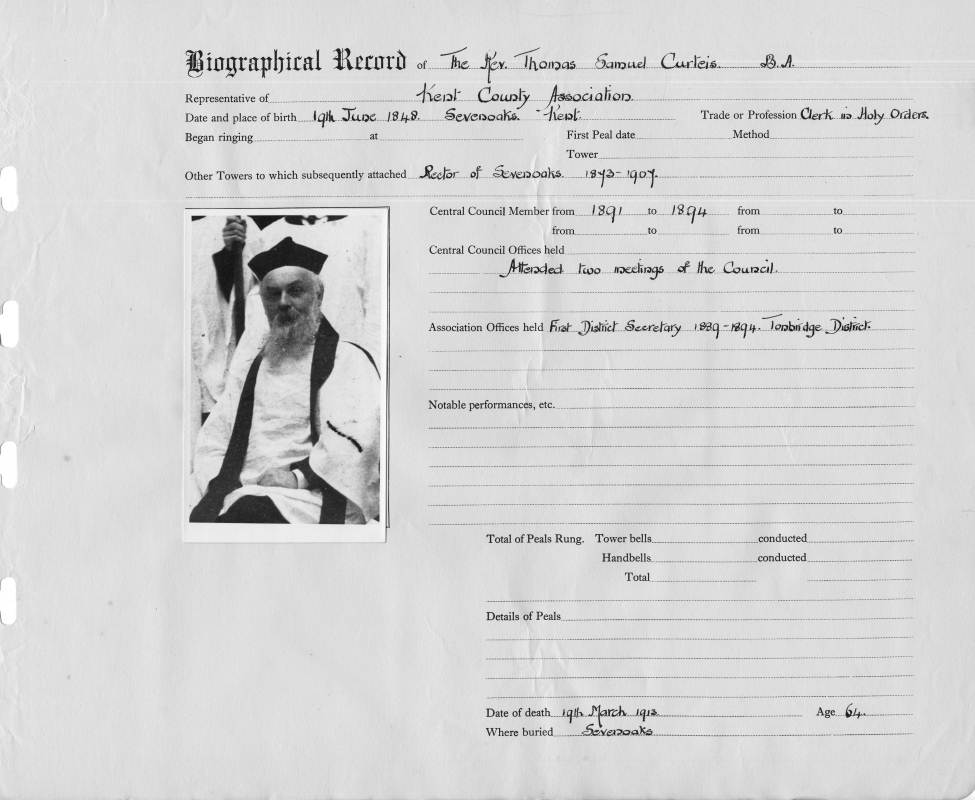 Biographical Record of The Rev. Thomas Samuel Curteis. B.A.
Representative of Kent County Association.
Date and place of birth 19th June 1848. Sevenoaks. Kent. Trade or Profession Clerk in Holy Orders.
Began ringing at First Peal date Method
Tower
Other Towers to which subsequently attached Rector of Sevenoaks. 1873-1907.
Central Council Member from 1891 to 1894 from to
from to from to
Central Council Offices held
Attended two meetings of the Council.
Association Offices held First District Secretary 1889-1894. Tonbridge District.
Notable performances, etc.
Total of Peals Rung. Tower bells conducted
Handbells conducted
Total
Details of Peals
Date of death 19th March 1913. Age 64.
Where buried Sevenoaks